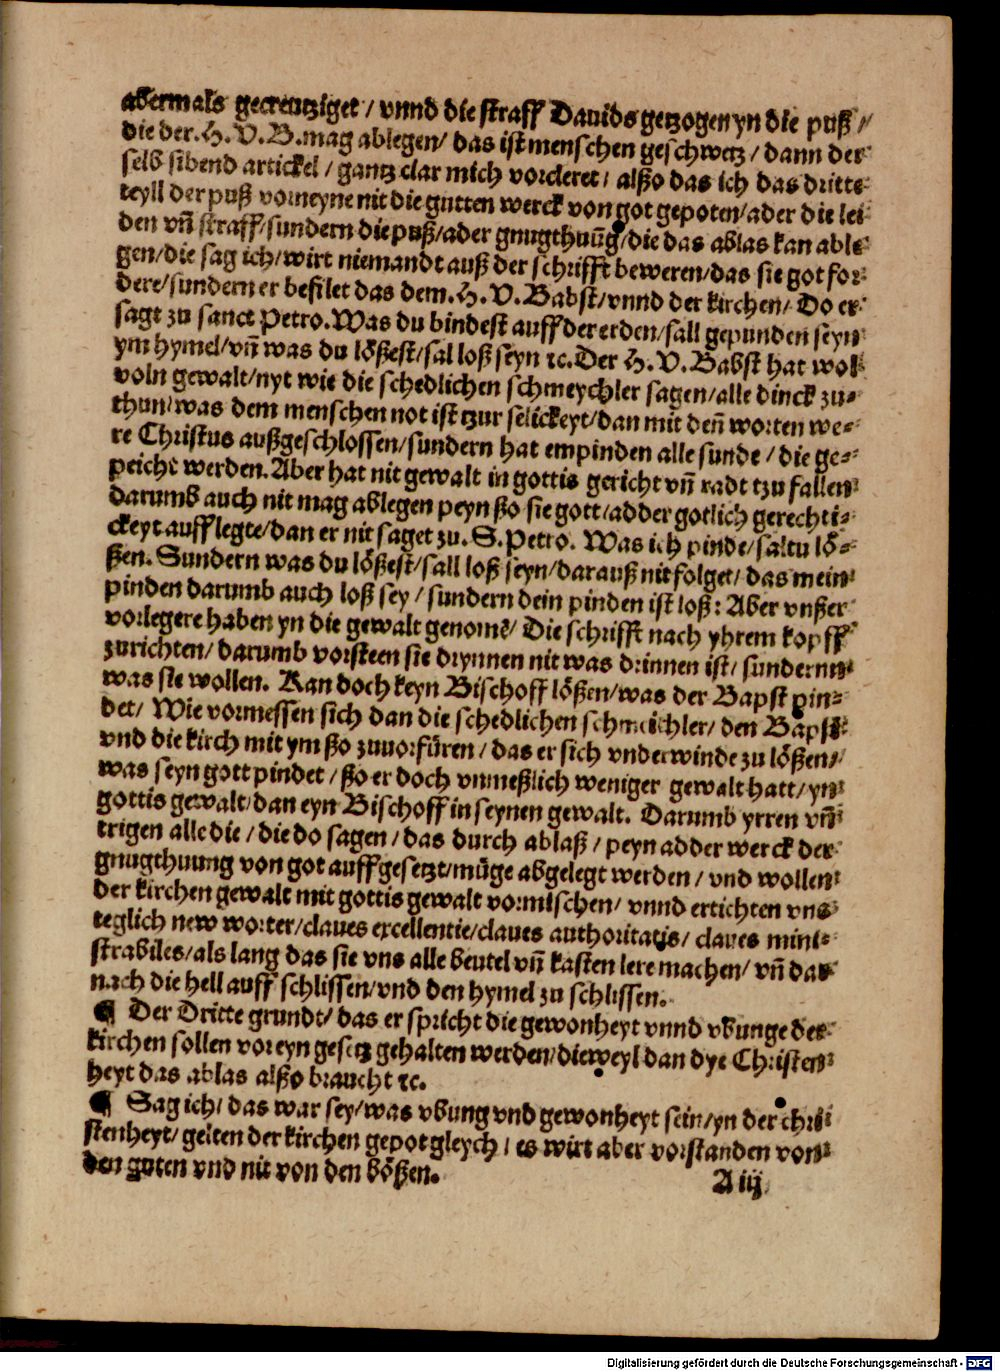 abermals gecreutziget / vnnd die straff Dauids getzogen yn die puß //
die der. H. V. B. mag ablegen / das ist menschen geschwetz / dann der⸗
selb sibend artickel / gantz clar mich vorcleret / alßo das ich das dritte⸗
teyll der puß vormeyne nit die gutten werck von got gepoten / ader die lei⸗
den vñ straff / sundern die puß / ader gnugthuũg / die das ablas kan able⸗
gen / die sag ich / wirt niemandt auß der schrifft beweren / das sie got for⸗
dere / sundern er befilet das dem. H. V. Babst / vnnd der kirchen / Do er
sagt zu sanct Petro. Was du bindest auff der erden / sall gepunden seyn
ym hymel / vñ was du lößest / sal loß seyn ꝛc. Der H. V. Babst hat wol⸗
voln gewalt / nyt wie die schedlichen schmeychler sagen / alle dinck zu⸗
thun / was dem menschen not ist tzur selickeyt / dan mit deñ worten we⸗
re Christus außgeschlossen / sundern hat empinden alle sunde / die ge⸗
peicht werden. Aber hat nit gewalt in gottis gericht vñ radt tzu fallen⸗
darumb auch nit mag ablegen peyn ßo sie gott / adder gotlich gerechti⸗
ckeyt aufflegte / dan er nit saget zu. S. Petro. Was ich pinde / saltu lö⸗
ßen. Sundern was du lößest / sall loß seyn / darauß nit folget / das mein⸗
pinden darumb auch loß sey / sundern dein pinden ist loß: Aber vnßer
vorlegere haben yn die gewalt genomẽ / Die schrifft nach yhrem kopff
zurichten / darumb vorsteen sie drynnen nit was drinnen ist / sundernn⸗
was sie wollen. Kan doch keyn Bischoff lößen / was der Bapst pin⸗
det / Wie vormessen sich dan die schedlichen schmeichler / den Bapst⸗
vnd die kirch mit ym ßo zuuorfüren / das er sich vnderwinde zu lößen //
was seyn gott pindet / ßo er doch vnmeßlich weniger gewalt hatt / yn⸗
gottis gewalt / dan eyn Bischoff in seynen gewalt. Darumb yrren vñ⸗
trigen alle die / die do sagen / das durch ablaß / peyn adder werck der⸗
gnugthuung von got auffgesetzt / müge abgelegt werden / vnd wollen⸗
der kirchen gewalt mit gottis gewalt vormischen / vnnd ertichten vns⸗
teglich new worter / claues excellentie / claues authoritatis / claues mini⸗
strabiles / als lang das sie vns alle beutel vñ kasten lere machen / vñ dar⸗
nach die hell auff schlissen / vnd den hymel zu schlissen.
¶ Der Dritte grundt / das er spricht die gewonheyt vnnd vbunge der⸗
kirchen sollen vor eyn gesetz gehalten werden / dieweyl dan dye Christen⸗
heyt das ablas alßo braucht ꝛc.
¶ Sag ich / das war sey / was vbung vnd gewonheyt sein / yn der chri⸗
stenheyt / gelten der kirchen gepot gleych / es wirt aber vorstanden von⸗
den guten vnd nit von den bößen.
A iij
Digitalisierung gefördert durch die Deutsche Forschungsgemeinschaft - DFG